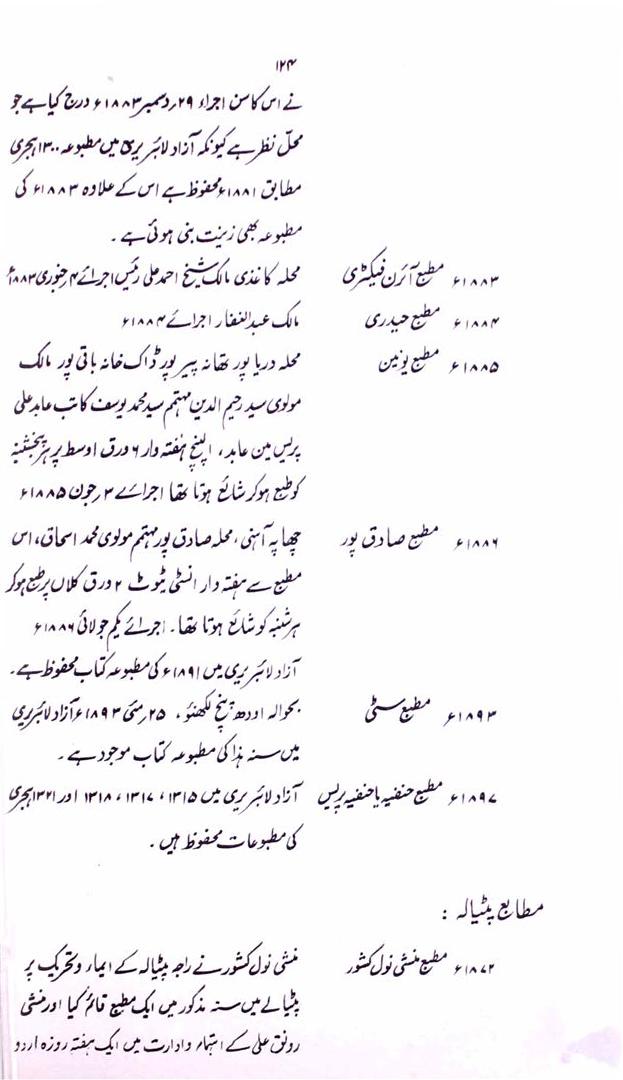 ۱۲۴
نے اس کا سن اجراء ۲۹ دسمبر ۱۸۸۳ء درج کیا ہے جو
محلّ نظر ہے کیونکہ آزاد لائبریری میں مطبوعہ ۱۳۰۰ ہجری
مطابق ۱۸۸۱ء محفوظ ہے اس کے علاوہ ۱۸۸۳ء کی
مطبوعہ بھی زینت بنی ہوئی ہے ۔
۱۸۸۳ء مطبع آئرن فیکٹری محلہ کاغذی مالک شیخ احمد علی رئیس اجرائے ۴ جنوری ۱۸۸۳ء
۱۸۸۴ء مطبع حیدری مالک عبدالغفار اجرائے ۱۸۸۴ء
۱۸۸۵ء مطبع یونین محلہ دریا پور تھانہ پیر پور ڈاک خانہ باقی پور مالک
مولوی سید رحیم الدین مہتمم سید محمد یوسف کاتب عابد علی
پریس مین عابد، الپنچ ہفتہ وار ۶ ورق اوسط پر ہر پنجشنبہ
کو طبع ہو کر شائع ہوتا تھا اجرائے ۳ جون ۱۸۸۵ء
۱۸۸۶ء مطبع صادق پور چھاپہ آہنی، محلہ صادق پور مہتمم مولوی محمد اسحاق، اس
مطبع سے ہفتہ دار انسٹی ٹیوٹ ۲ ورق کلاں پر طبع ہو کر
ہر شنبہ کو شائع ہوتا تھا۔ اجرائے یکم جولائی ۱۸۸۶ء
آزاد لائبریری میں ۱۸۹۱ء کی مطبوعہ کتاب محفوظ ہے۔
۱۸۹۳ء مطبع سٹی بحوالہ اودھ پنچ لکھنؤ، ۲۵ مئی ۱۸۹۳ء آزاد لائبریری
میں سنہ ہذا کی مطبوعہ کتاب موجود ہے ۔
۱۸۹۷ء مطبع حنفیہ یا حنفیہ پریس آزاد لائبریری میں ۱۳۱۵، ۱۳۱۷، ۱۳۱۸ اور ۱۳۲۱ ہجری
کی مطبوعات محفوظ ہیں ۔
مطابع پٹیالہ :
۱۸۷۲ء مطبع منشی نول کشور منشی نول کشور نے راجہ پٹیالہ کے ایماء و تحریک پر
پٹیالے میں سنہ مذکور میں ایک مطبع قائم کیا اور منشی
رونق علی کے اہتمام و ادارت میں ایک ہفتہ روزہ اردو